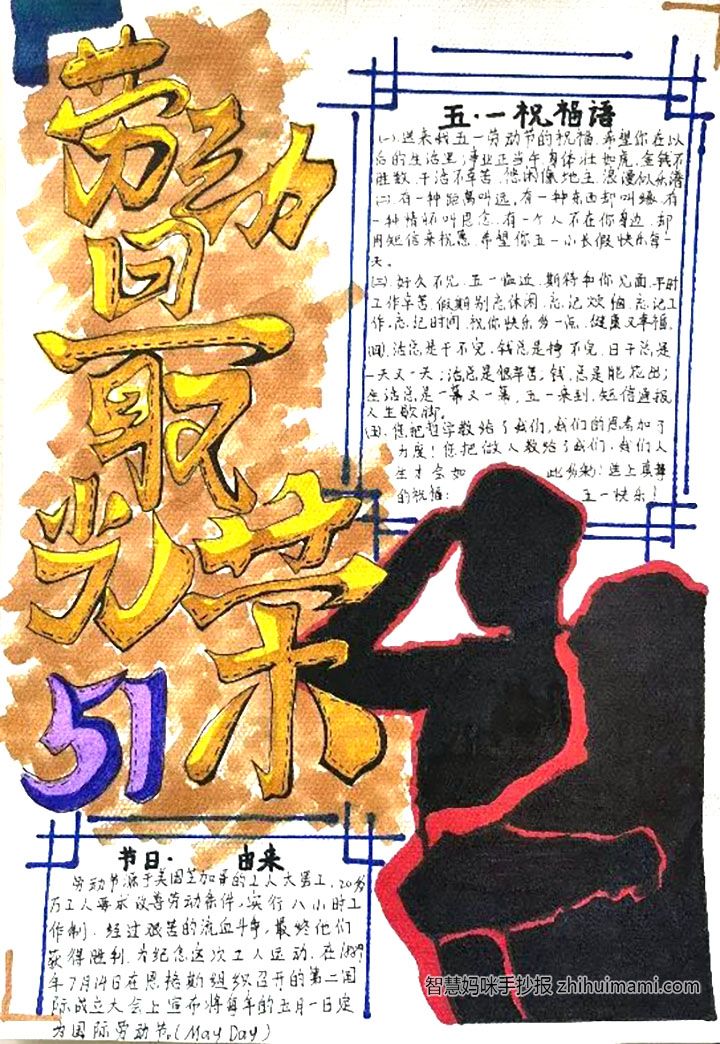 劳动
最
光荣
51
五·一祝福语
(一).送来我五一劳动节的祝福.希望你在以
后的生活里:事业正当午.身体壮如虎.金钱不
胜数.干活不辛苦.悠闲像地主.浪漫似乐谱
(二).有一种距离叫远,有一种东西却叫缘.有
一种情怀叫思念.有一个人不在你身边.却
用短信来祝愿.希望你五一小长假快乐每一
天.
(三).好久不见.五一临近.期待和你见面.平时
工作辛苦.假期别忘休闲.忘记烦恼.忘记工
作.忘记时间.祝你快乐多一点.健康又幸福.
(四).活总是干不完,钱总是挣不完.日子总是
一天又一天;活总是很辛苦.钱.总是能花出;
生活总是一幕又一幕,五一来到.短信通报
人生歇脚.
(五).您把哲学教给了我们,我们的思考加了
度!您把做人教给了我们,我们人
生才会如 此多彩:送上真挚
的祝福: 五一快乐!
节日· 由来
劳动节源于美国芝加哥的工人大罢工.20多
万工人要求改善劳动条件,实行八小时工
作制.经过艰苦的流血斗争,最终他们
获得胜利.为纪念这次工人运动.在1889
年7月14日在恩格斯组织召开的第二国
际成立大会上宣布将每年的五月一日定
为国际劳动节.(May Day)
智慧妈咪手抄报 zhihuimami.com